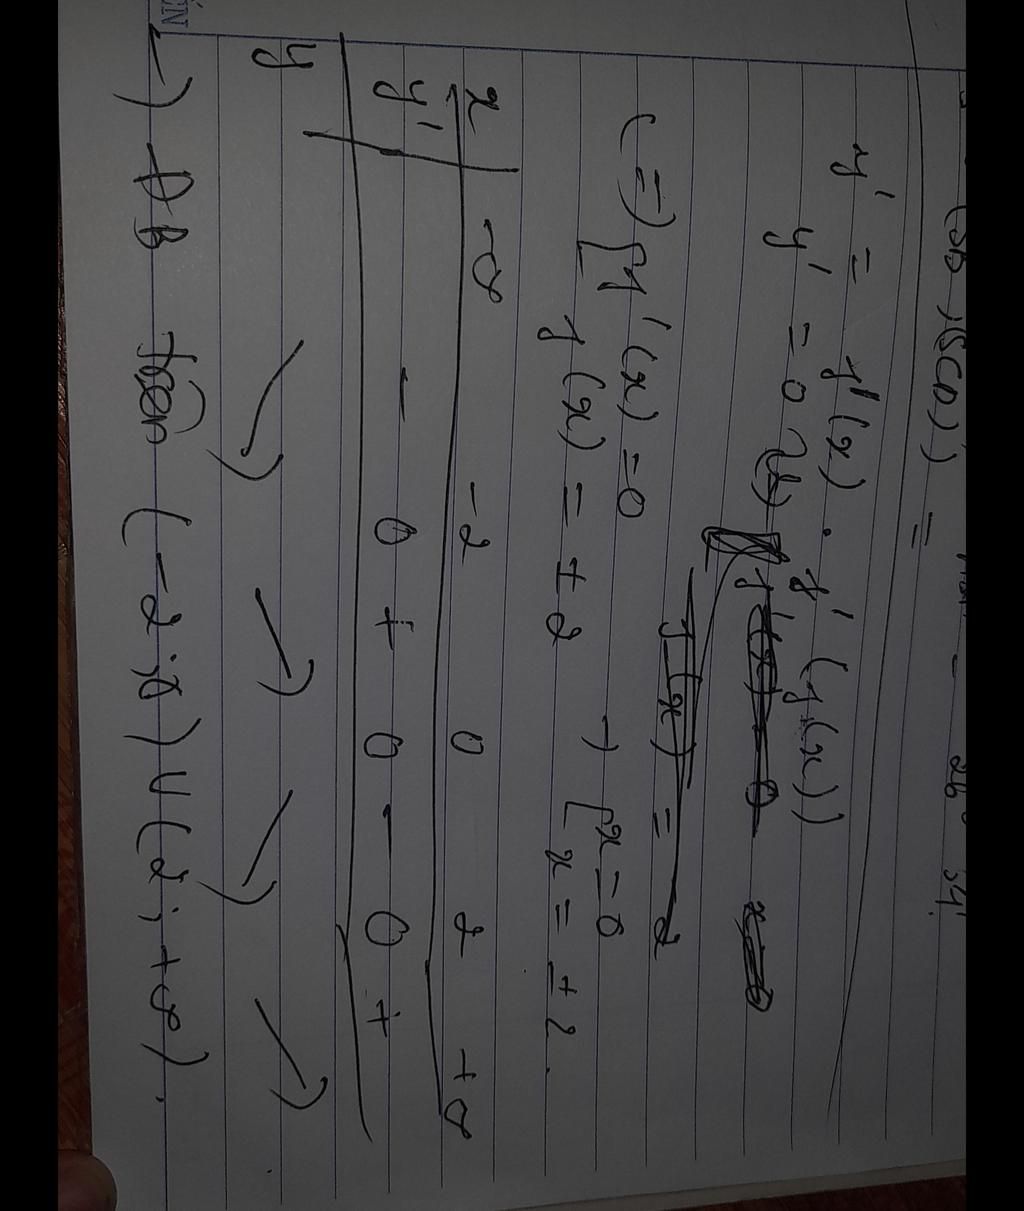 (SCD)) =
y' = f'(x) . f'(f(x))
y' = 0
f(x) = 2
(=) [ f'(x) = 0 → [ x = 0
f(x) = ± 2 x = ± 2.
x -∞ -2 0 2 +∞
y' - 0 + 0 - 0 +
y
→ ĐB trên (-2; 0) ∪ (2; +∞).